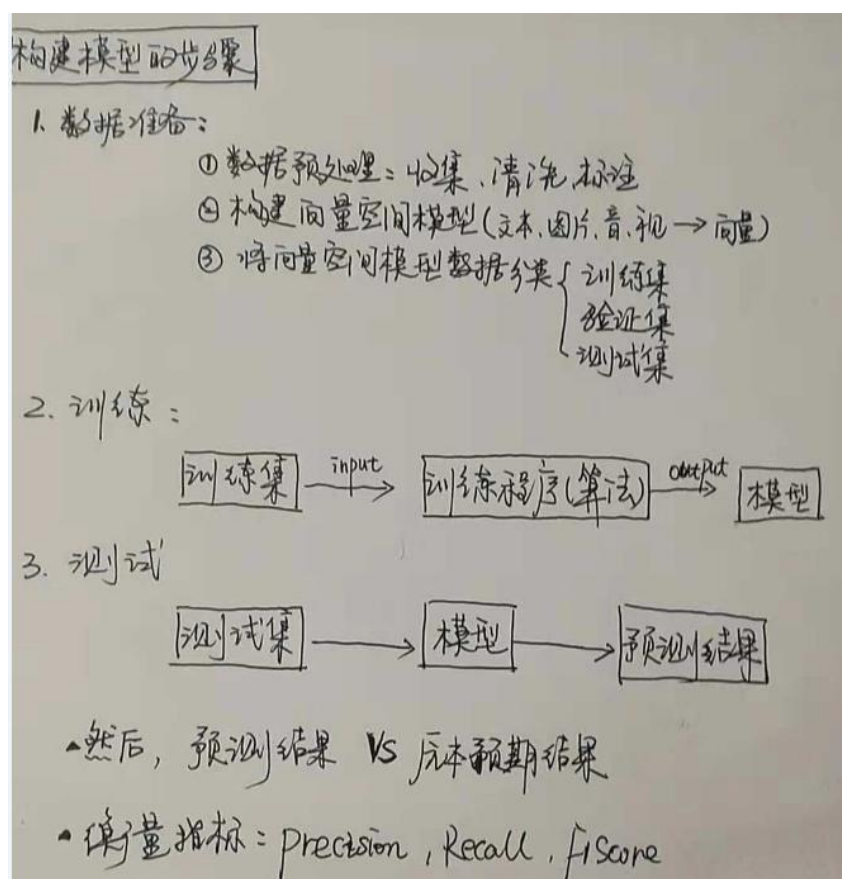 构建模型的步骤
1. 数据准备：
① 数据预处理：收集、清洗、标注
② 构建向量空间模型(文本、图片、音、视 → 向量)
③ 将向量空间模型数据分类 { 训练集
验证集
测试集
2. 训练：
训练集 input → 训练程序(算法) output → 模型
3. 测试
测试集 → 模型 → 预测结果
然后，预测结果 VS 原本预期结果
衡量指标：precision, Recall, F1Score